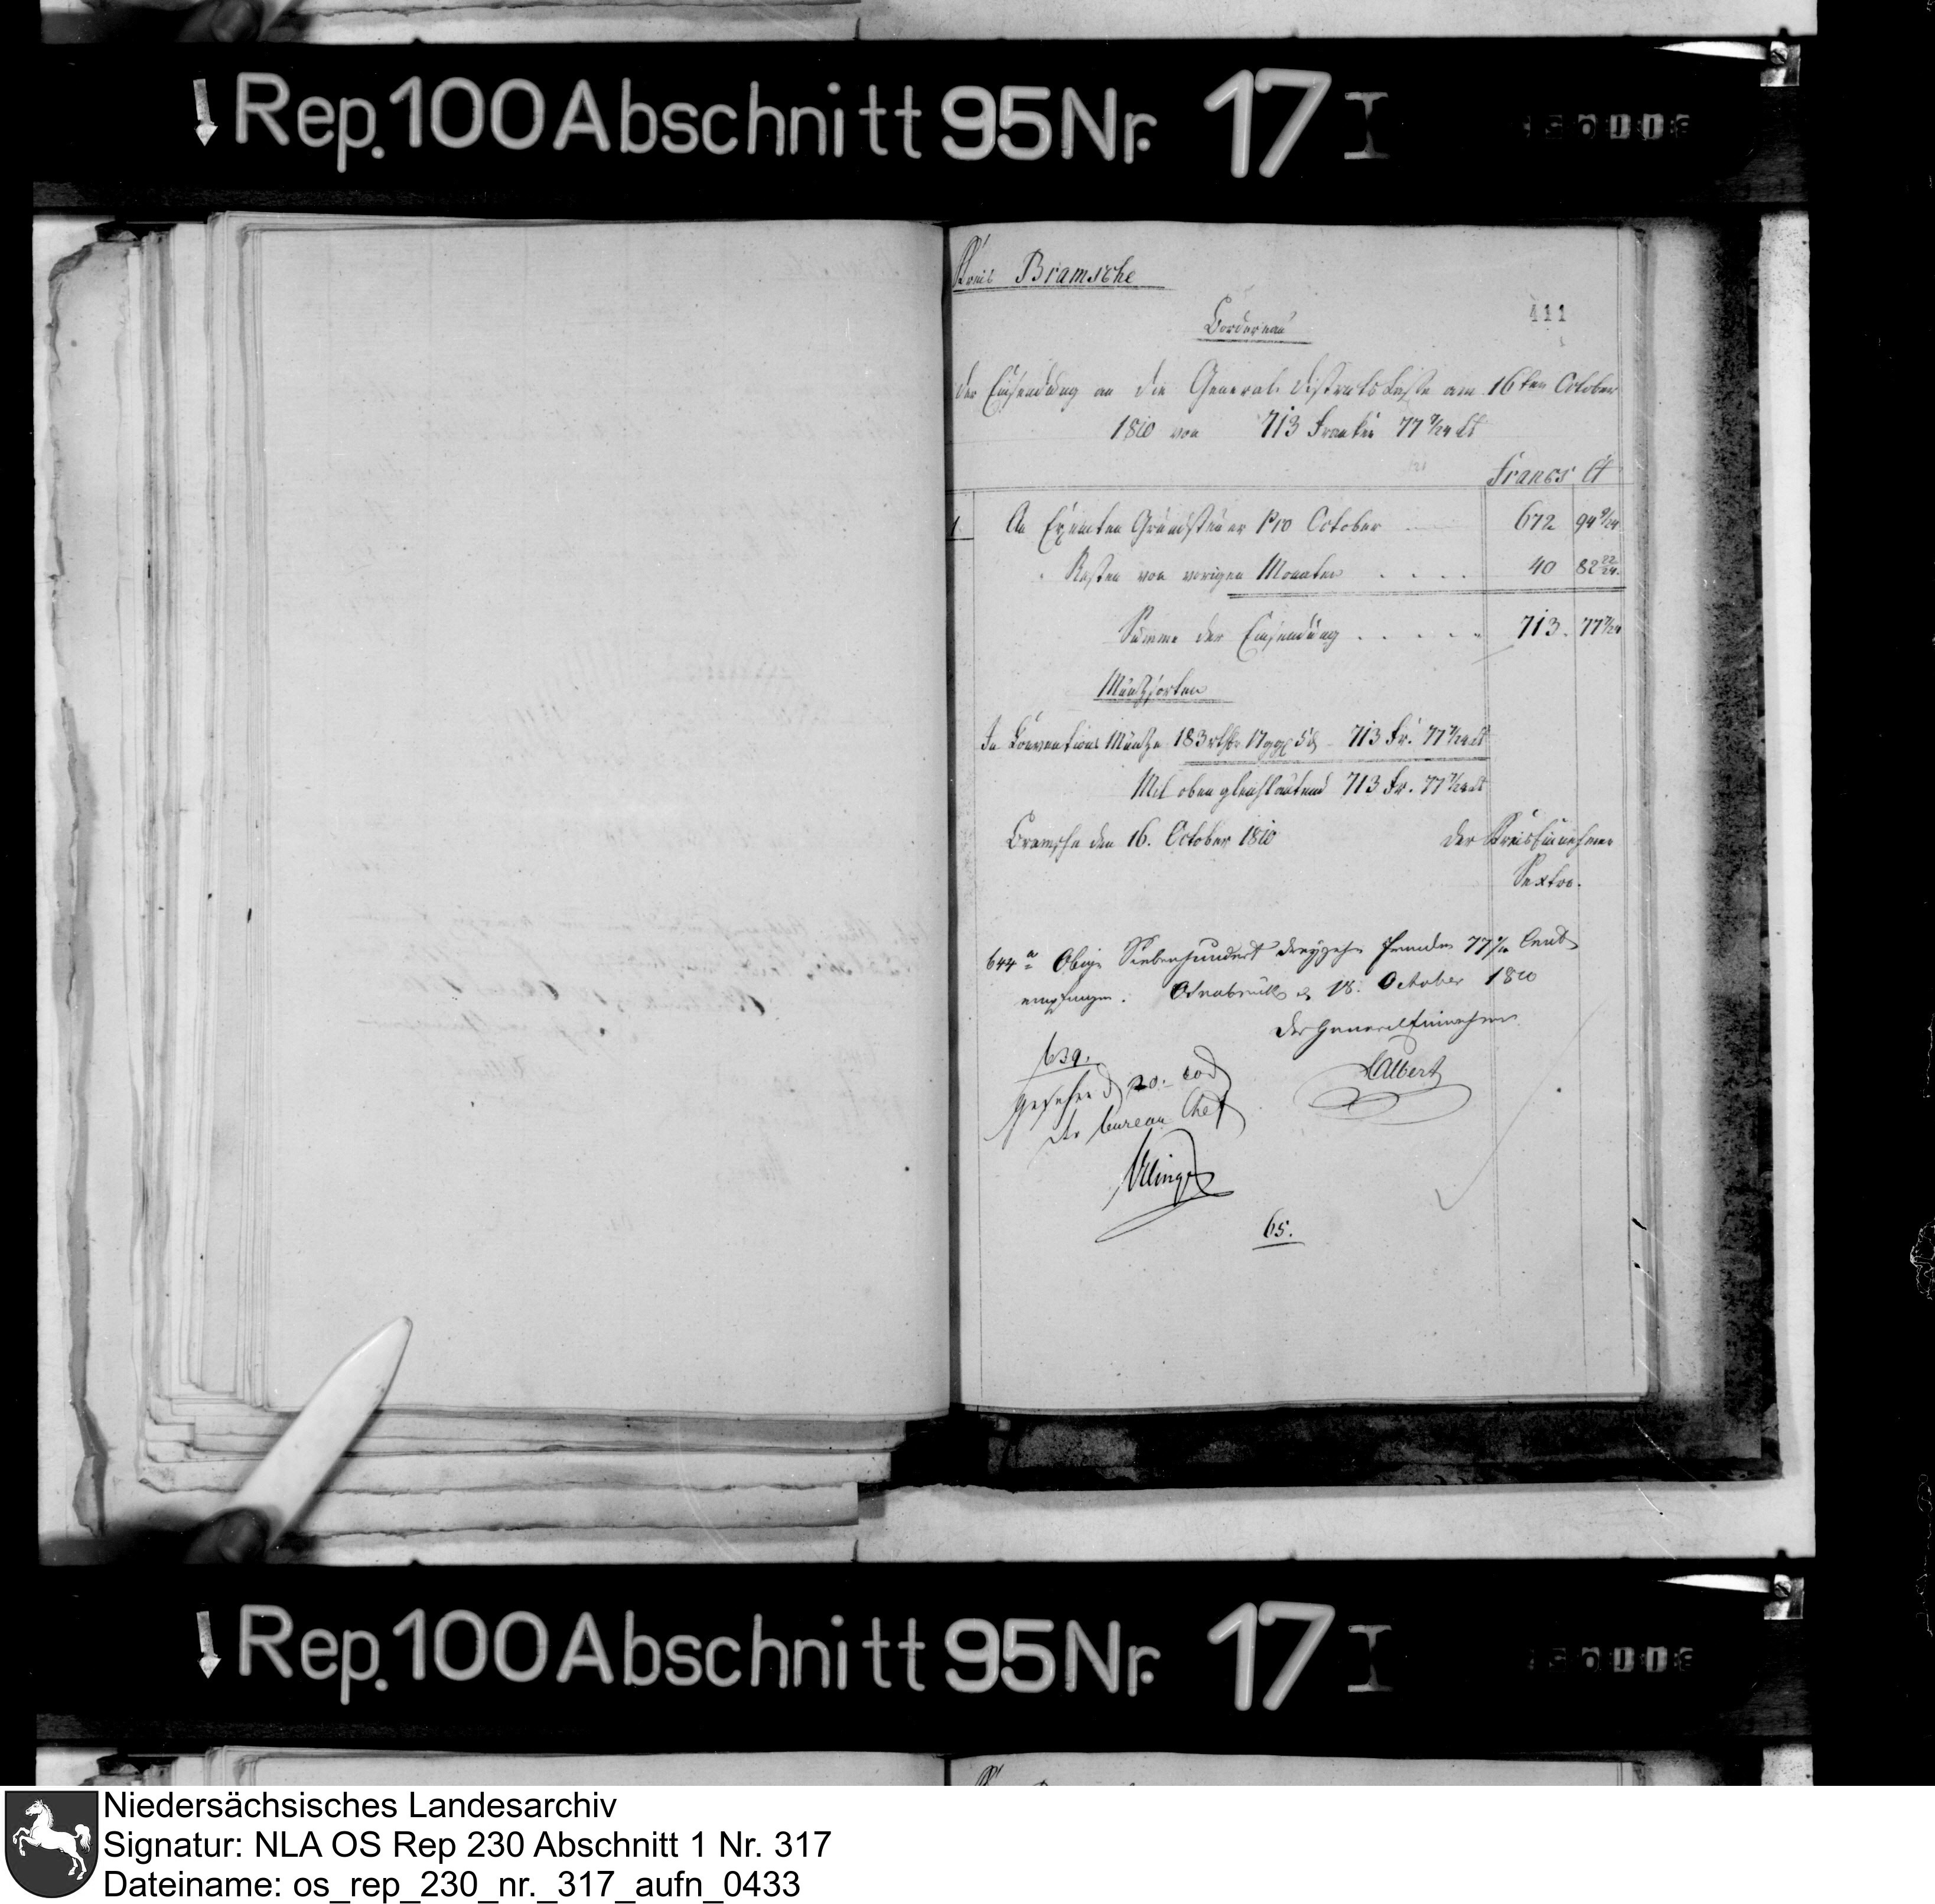 Rep. 100 Abschnitt 95 Nr. 17 I
Kreis Bramsche
411
Bordereau
der Einsendung an die General Districts Casse am 16ten October
1810 von 713 Franken 77 7/24 Ct
Francs Ct
1. An Exemten Grundsteuer pro October 672 94 9/24
" Resten von vorigen Monaten 40 82 22/24
Summe der Einsendung 713. 77 7/24
Müntzsorten
In Conventions Müntze 183 rthlr 17 ggr 5 d 713 Fr. 77 7/24 Ct
Mit oben gleichlautend 713 Fr. 77 7/24 Ct
Bramsche den 16. October 1810
Der Kreiseinnehmer
Sextro.
644 Obige Siebenhundert dreyzehn Franken 77 Cent
empfangen. Osnabrück d 18. October 1810
Der General Einnehmer
Albert
639.
gesehen d 20. eod
der bureau Chef
65.
Rep. 100 Abschnitt 95 Nr. 17 I
Niedersächsisches Landesarchiv
Signatur: NLA OS Rep 230 Abschnitt 1 Nr. 317
Dateiname: os_rep_230_nr._317_aufn_0433